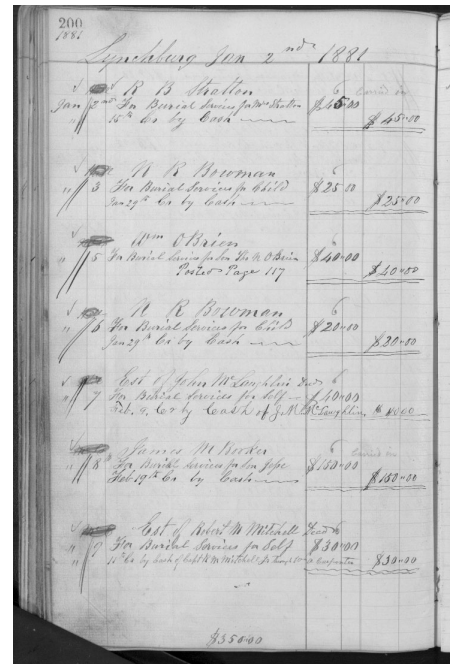 200
1881
Lynchburg Jan 2nd 1881
R B Stratton 6
Jan 2nd For Burial Services for Mrs Stratton $45.00
" 15th Cr by Cash $45.00
N R Bowman 6
" 3 For Burial Services for Child $25.00
Jan 29th Cr by Cash $25.00
Wm O'Brien 6
" 5 For Burial Services for Son Thos N O'Brien $40.00
Posted Page 117 $40.00
N R Bowman 6
" 6 For Burial Services for Child $20.00
Jan 29th Cr by Cash $20.00
Est of John McLaughlin Decd 6
" 7 For Burial Services for Self $40.00
Feb. 9. Cr by Cash of J. M. McLaughlin
James M Booker 6
" 8 For Burial Services for Son Jesse $150.00
Feb 19th Cr by Cash $150.00
Est of Robert M Mitchell Decd 6
" 9 For Burial Services for Self $30.00
" 15th Cr by Cash of Capt R M Mitchell Jr Carpenter $30.00
$350.00